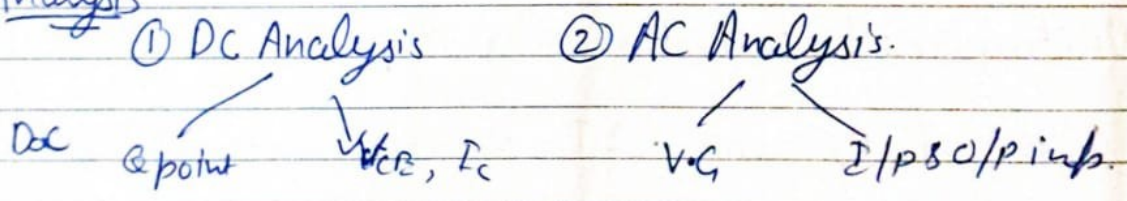 Analysis
① DC Analysis ② AC Analysis.
Q point VCE, IC V.G I/p & O/p imp.